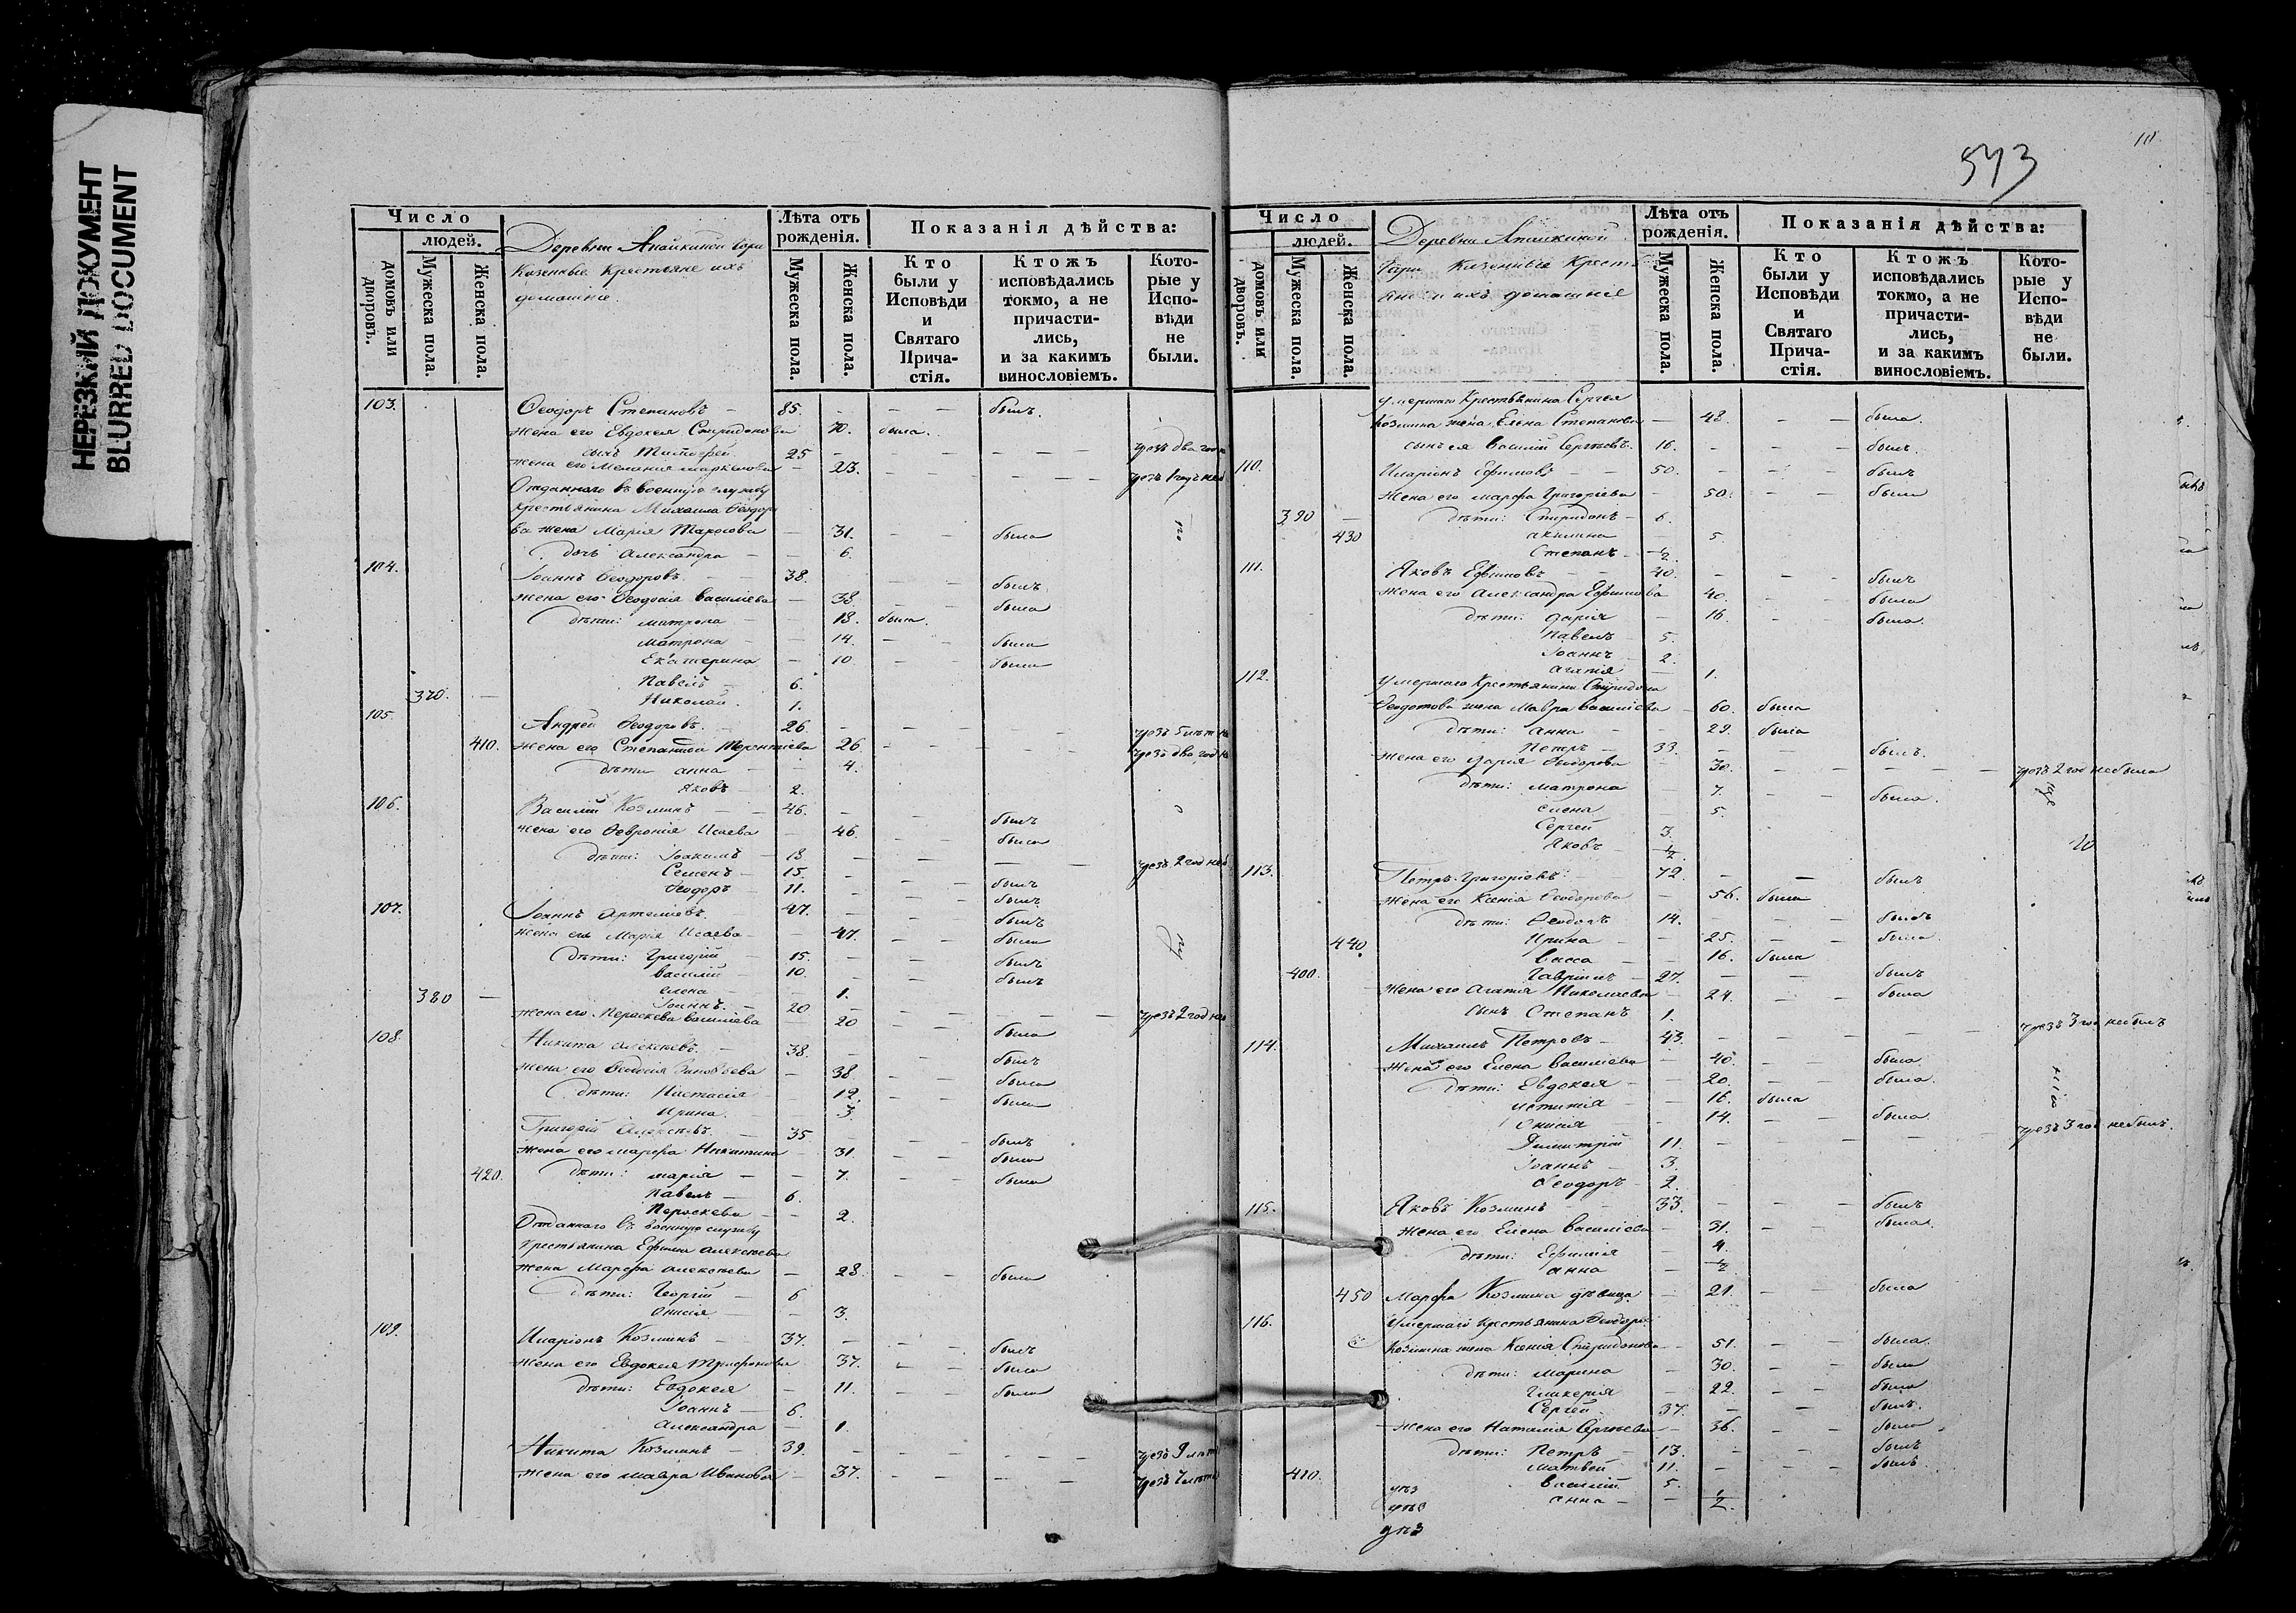 НЕРЕЗКИЙ ДОКУМЕНТ
BLURRED DOCUMENT
Число
людей.
домовъ или дворовъ.
Мужеска пола.
Женска пола.
Деревни Апайкиной Гари
Казенные Крестьяне ихъ
домашніе.
Лѣта отъ рожденія.
Мужеска пола.
Женска пола.
Показанія дѣйства:
Кто были у Исповѣди и Святаго Прича-стія.
Ктожъ исповѣдались токмо, а не причасти-лись, и за какимъ винословіемъ.
Кото-рые у Испо-вѣди не были.
103. Ѳеодоръ Степановъ – 85. – – – былъ.
Жена его Евдокея Спиридонова 70. была.
сынъ Тимофей 25 – – – – чрезъ два года
жена его Мелания Маркелова – 23. – – – чрезъ 1 годъ неб
Отданнаго въ военную службу
Крестьянина Михаила Ѳеодоро
ва жена Марія Тарасова – 31. – – была
дочь Александра – – 6.
104. Іоаннъ Ѳеодоровъ – 38. – былъ
жена его Ѳеодосія Василіева – 38. – была
дѣти: Матрона – – 18. была.
Матрона – – 14. – – была
Екатерина – 10 – – была
Павелъ – 6.
370. – Николай. 1.
105. Андрей Ѳеодоровъ. – 26. – – – – чрезъ 5 лѣтъ не
410. жена его Степанида Терентиева 26 – – – – чрезъ два год не
дѣти анна – – 4.
Яковъ – 2.
106. Василій Козминъ – 46. – – былъ
жена его Ѳеврония Исаева – 46. – – была
дѣти: Іоакимъ – 18 – – – – чрезъ 2 год неб
Семенъ – 15. – – – былъ
Ѳеодоръ – 11. – – – былъ
107. Іоаннъ Артемиевъ. – 47. – – – былъ
жена его Марія Исаева – – 47. – – была
дѣти: Григорій – 15. – – – былъ
Василій – 10. – – – былъ
елена – – 1.
380 – Іоаннъ. – 20 – – – – чрезъ 2 год неб
жена его Пераскева Василіева – 20 – – была
108. Никита Алексѣевъ. – 38. – – былъ
жена его Ѳеодосия Зиновьева – 38. – – была
дѣти: Настасия – 12. – – была
Ирина – 3.
Григорій Алексѣевъ. – 35 – – – былъ
Жена его Марфа Никитина – 31. – – была
420. дѣти: Марія – – 7. – – была
Павелъ – 6.
Пераскева – – 2.
Отданнаго въ военную службу
Крестьянина Ефима Алексѣева
жена Марфа Алексѣева – 28 – – была
дѣти: Георгій – 6
Анисия – 3.
109. Иларіонъ Козминъ – 37. – – – былъ
жена его Евдокея Трифонова 37. – – была
дѣти: Евдокея – 11. – – была
Іоаннъ – 6.
Александра – 1.
Никита Козминъ – 39. – – – – чрезъ 9 лѣтъ
жена его Мавра Иванова – 37. – – – – чрезъ 7 лѣтъ
111
543
Число
людей.
домовъ или дворовъ.
Мужеска пола.
Женска пола.
Деревни Апайкиной
Гари Казенныѣ Кресть
яне и ихъ домашніе
Лѣта отъ рожденія.
Мужеска пола.
Женска пола.
Показанія дѣйства:
Кто были у Исповѣди и Святаго Прича-стія.
Ктожъ исповѣдались токмо, а не причасти-лись, и за какимъ винословіемъ.
Кото-рые у Испо-вѣди не были.
умершаго Крестьянина Сергея
Козмина жена Елена Степанова – 48. – – была.
сынъ ея Василій Сергѣевъ. 16. – – – былъ.
110. Иларіонъ Ефимовъ – – 50. – – – былъ
Жена его Марфа Григоріева – 50. – – была
390 – дѣти: Спиридонъ – 6.
430 акилина – 5
Степанъ – ½.
111. Яковъ Ефимовъ – – 40. – – – былъ
Жена его Александра Ефимова 40. – – была
дѣти: Дарія – 16. – – была.
Павелъ – 5.
Іоаннъ – 2.
агапия – 1.
112. Умершаго Крестьянина Спиридона
Ѳеодотова жена Мавра Василіева – 60. была
дѣти: Анна – – 29. была
Петръ – 33. – – былъ.
жена его Дарія Ѳеодорова – 30. – – – – чрезъ 2 год небыла
дѣти: Матрона – 7. – – была.
елена – 5.
Сергей – 3.
Яковъ – ½.
113. Петръ Григоріевъ – 72. – – былъ
жена его Ксенія Ѳеодорова – 56. была
дѣти: Ѳеодоръ 14. – – былъ
440. Ирина – – 25. – – была.
васса – – 16. была
400. Гавріилъ – 27. – – былъ
Жена его Агапия Николаева – 24. – – была
сынъ Степанъ 1.
114. Михаилъ Петровъ – 43. – – – – чрезъ 3 год небылъ
Жена его Елена Василіева – 40. – – была
дѣти: Евдокея – – 20. – – была.
устиния – – 16. была
Анисия – 14. – – была.
Димитрій 11. – – – – чрезъ 3 год небылъ.
Іоаннъ – 3.
Ѳеодоръ – 2.
115. Яковъ Козминъ – – 33. – – – былъ
жена его Елена Василіева – 31. – – была.
дѣти: Ефимия – 4.
анна – ½
450 Марфа Козмина дѣвица – 21. – – была
116. Умершаго крестьянина Ѳеодора
Козмина жена Ксенія Спиридонова – 51. – – была.
дѣти: Марина – 30. – – была
Гликерия – 22. – – была
Сергей. 37. – – былъ.
Жена его Наталия Сергѣева – 36. – – была
дѣти: Петръ – 13. – – былъ
410. Матвей – 11. – – – былъ.
Василій 5.
анна – – ½.